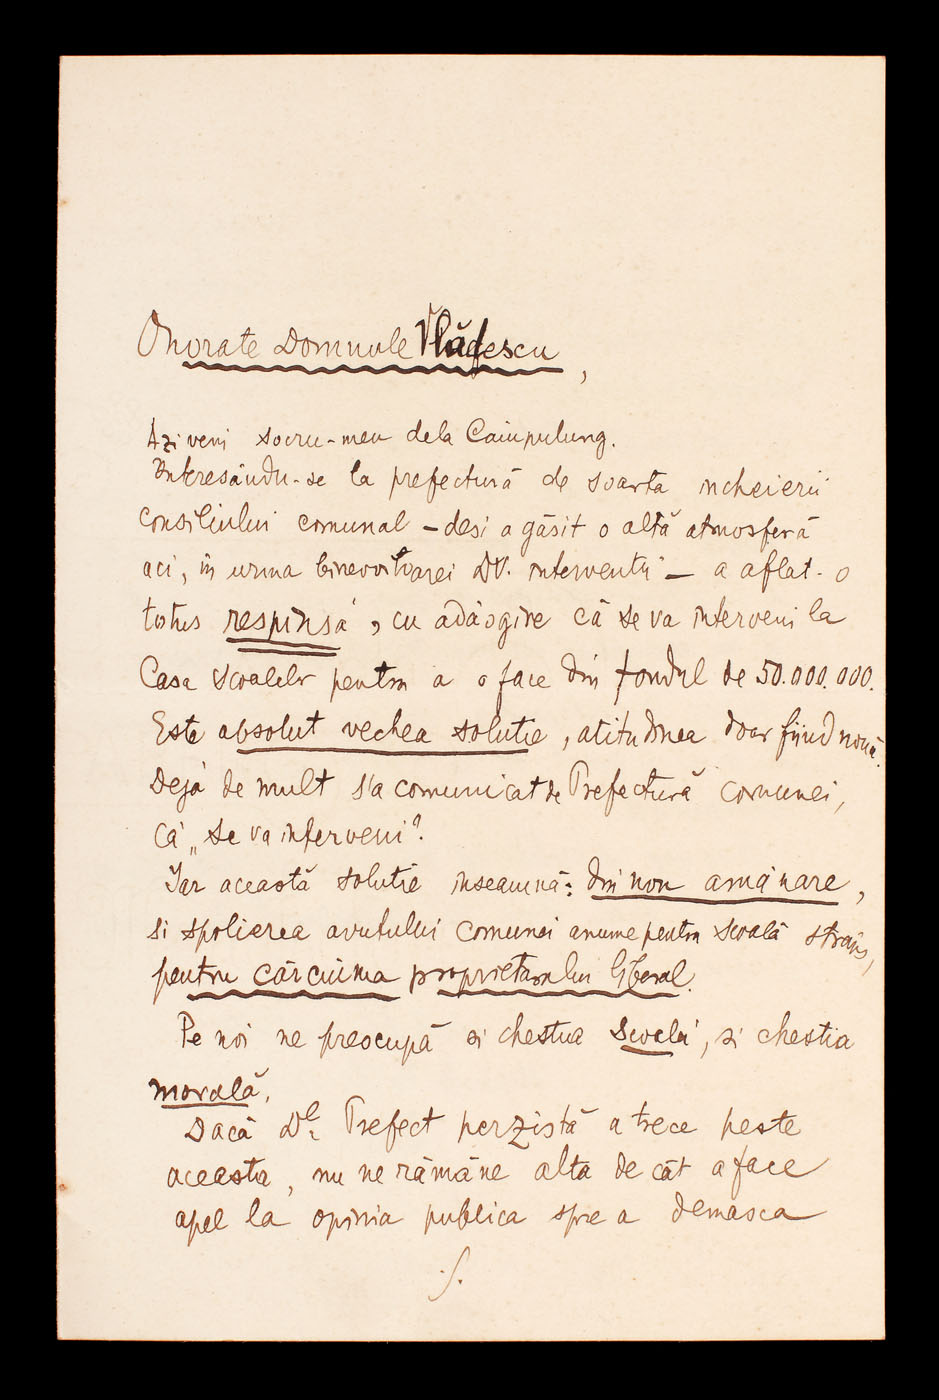 Onorate Domnule Vlădescu,
Azi veni socru-meu dela Câmpulung.
Interesându-se la prefectură de soarta incheierii
Consiliului comunal – desi a găsit o altă atmosferă
aci, în urma binevoitoarei Dv. interventii – a aflat-o
totus respinsă, cu adăogire că se va interveni la
Casa Scoalelor pentru a o face din fondul de 50.000.000.
Este absolut vechea solutie, atitudinea doar fiind nouă.
Dejà de mult s'a comunicat de Prefectură comunei,
că „se va interveni".
Iar această solutie inseamnă: din nou amânare,
si spolierea avutului comunei anume pentru scoală strâns,
pentru cârciuma proprietarului liberal.
Pe noi ne preocupă si chestia Scoalei, si chestia
morală.
Dacă Dl. Prefect perzistă a trece peste
aceasta, nu ne rămâne alta de cât a face
apel la opinia publica spre a demasca
./.